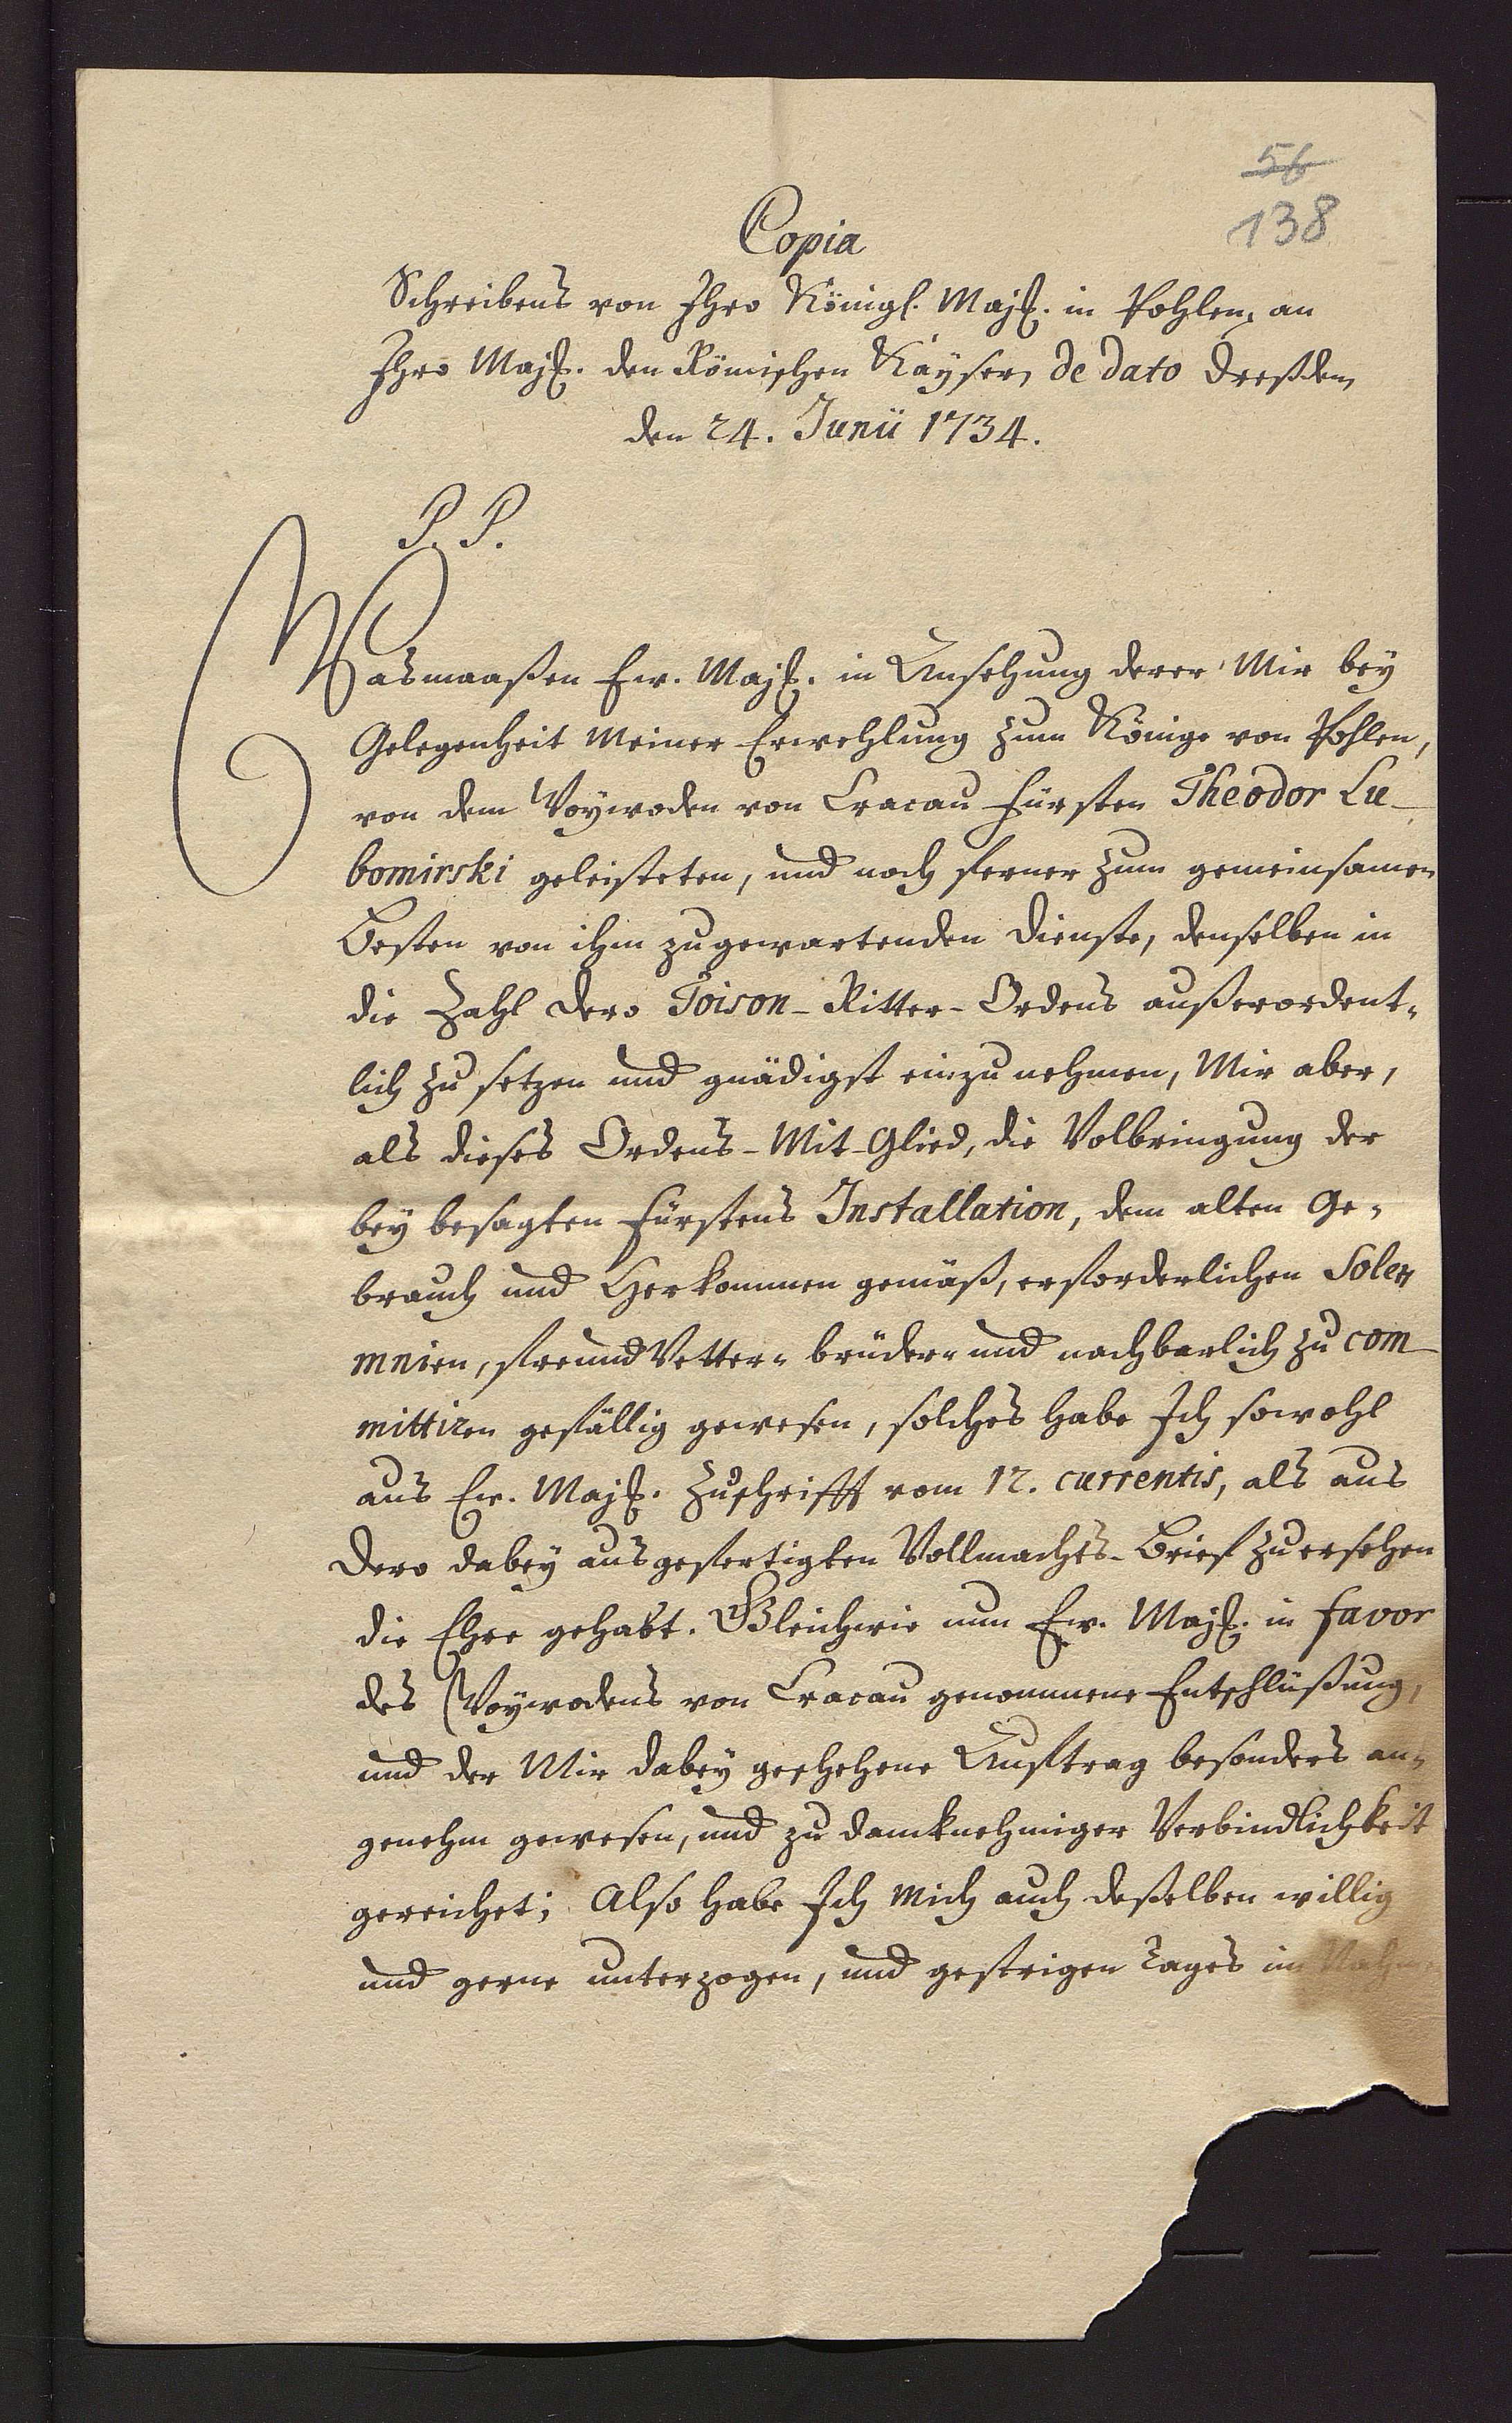 56
138
Copia
Schreibens von Ihro Königl. Majt. in Pohlen, an
Ihro Majt. den Römischen Kayser, de dato Dreßden,
den 24. Junii 1734.
P. P.
Wasmaaßen Ew. Majt. in Ansehung derer Mir bey
Gelegenheit Meiner Erwehlung zum Könige von Pohlen,
von dem Woywoden von Cracau Fürsten Theodor Lu-
bomirski geleisteten, und noch ferner zum gemeinsamen
Besten von ihm zugewartenden Dienste, denselben in
die Zahl dero Toison-Ritter-Ordens außerordent-
lich zu setzen und gnädigst einzunehmen, Mir aber,
als dieses Ordens-Mit-Glied, die Volbringung der
bey besagten Fürstens Installation, dem alten Ge-
brauch und Herkommen gemäß, erforderlichen Solen-
mnien, freund Vetter- brüder- und nachbarlich zu com-
mittiren gefällig gewesen, solches habe Ich sowohl
aus Ew. Majt. Zuschrifft vom 12. currentis, als aus
Dero dabey ausgefertigten Vollmachts-Brief zu ersehen
die Ehre gehabt. Gleichwie nun Ew. Majt. in favor
des Woywodens von Cracau genommene Entschlüßung,
und der Mir dabey geschehene Auftrag besonders an-
genehm gewesen, und zu dancknehmiger Verbindlichkeit
gereichet; Also habe Ich Mich auch deßelben willig
und gerne unterzogen, und gestrigen Tages im Nahmen